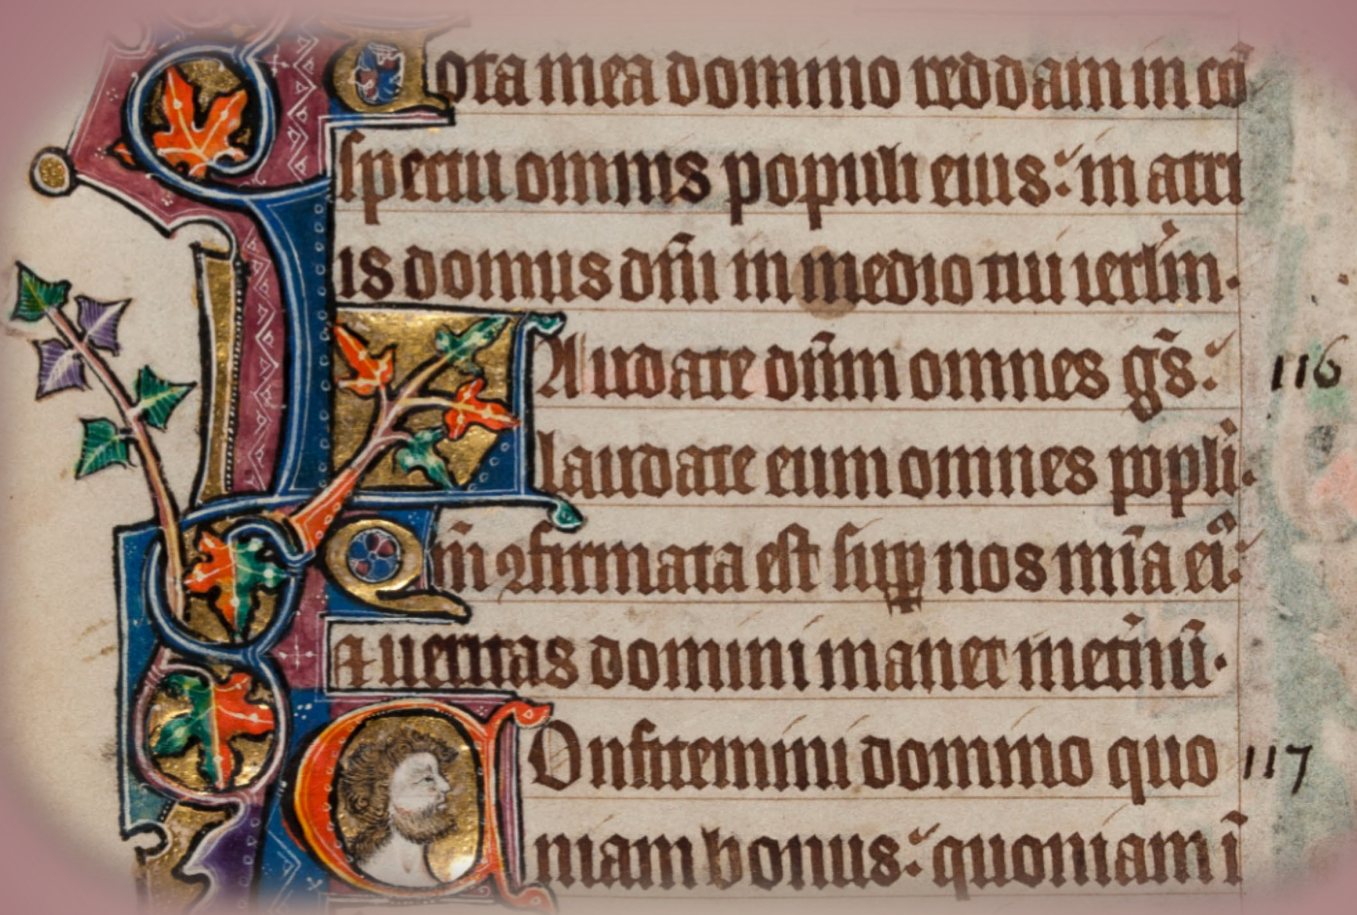 Vota mea domino reddam in cō
spectu omnis populi eius: in atri
is domus dñi in medio tui ierlm̄.
Laudate dñm omnes gs̄: 116
laudate eum omnes ppli.
Qm̄ ꝯfirmata est suꝑ nos mīa eiꝰ:
⁊ ueritas domini manet inet̾nū.
Confitemini domino quo 117
niam bonus: quoniam ī